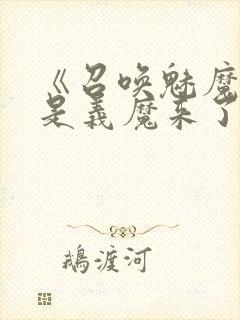 《召唤魅魔
是義魔来了
鵝渡河